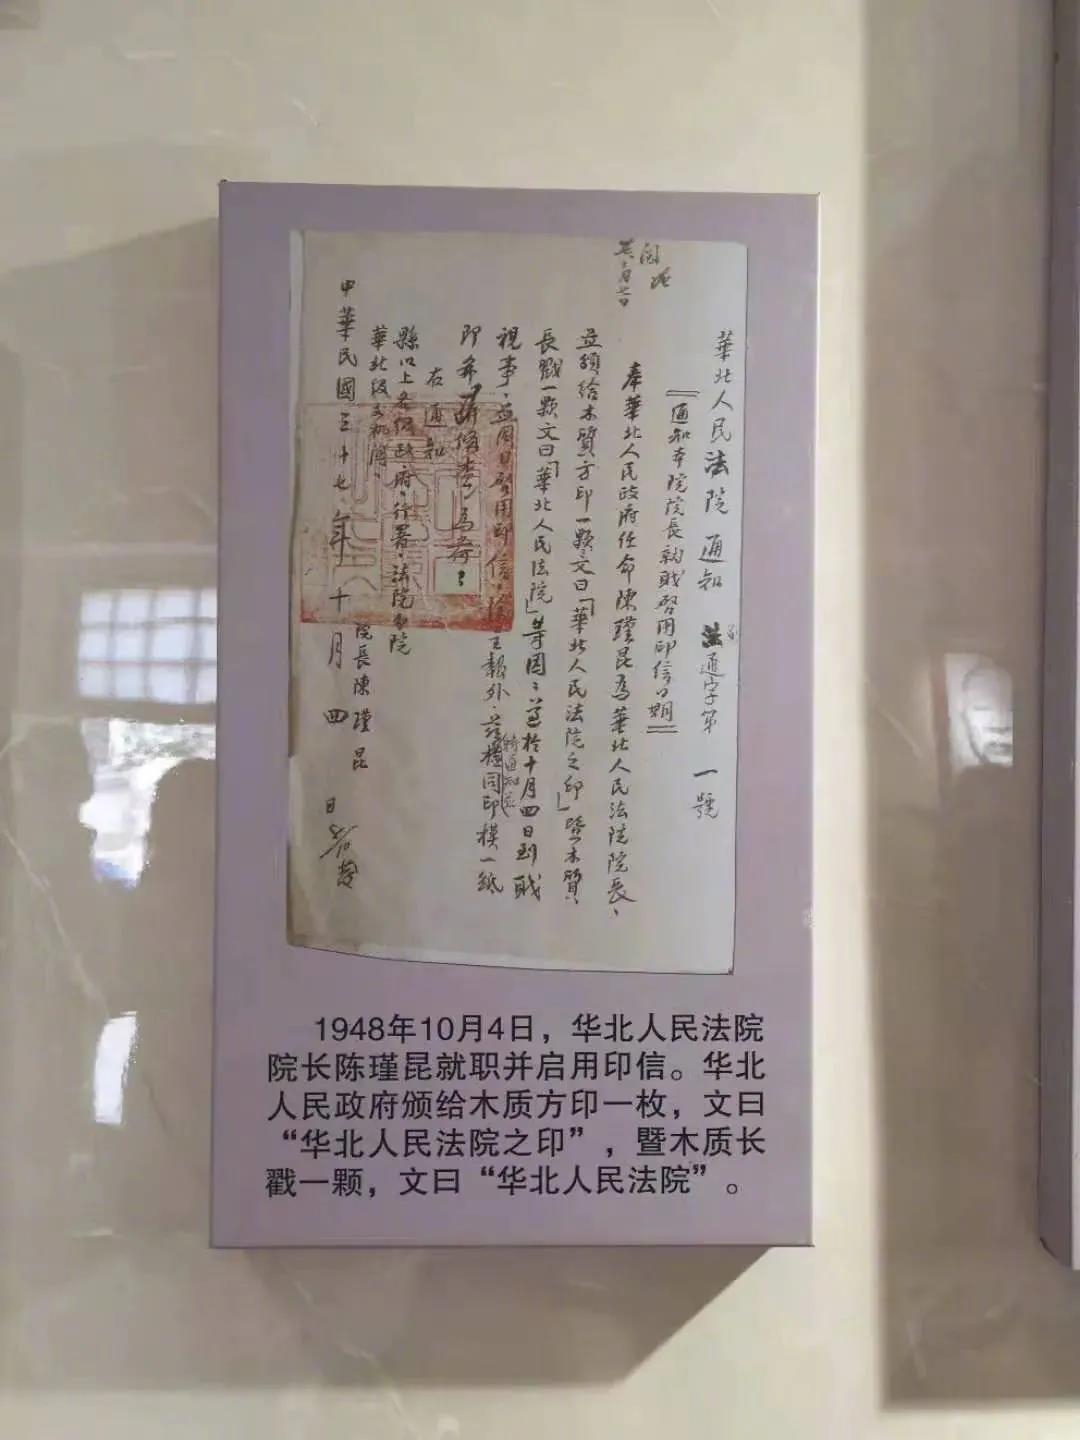 華北人民法院通知 法通字第一號
通知本院院長就職啓用印信日期
奉華北人民政府任命陳瑾昆為華北人民法院院長、
並頒給木質方印一顆文曰「華北人民法院之印」暨木質
長戳一顆文曰「華北人民法院」等因、遵於十月四日到職
視事、並同日啓用印信、除呈報外、
印模一紙
即希
為荷
右通知
縣以上各級政府、行署、法院
華北級各機關
院長陳瑾昆
中華民國三十七年十月四日
1948年10月4日，华北人民法院
院长陈瑾昆就职并启用印信。华北
人民政府颁给木质方印一枚，文曰
“华北人民法院之印”，暨木质长
戳一颗，文曰“华北人民法院”。